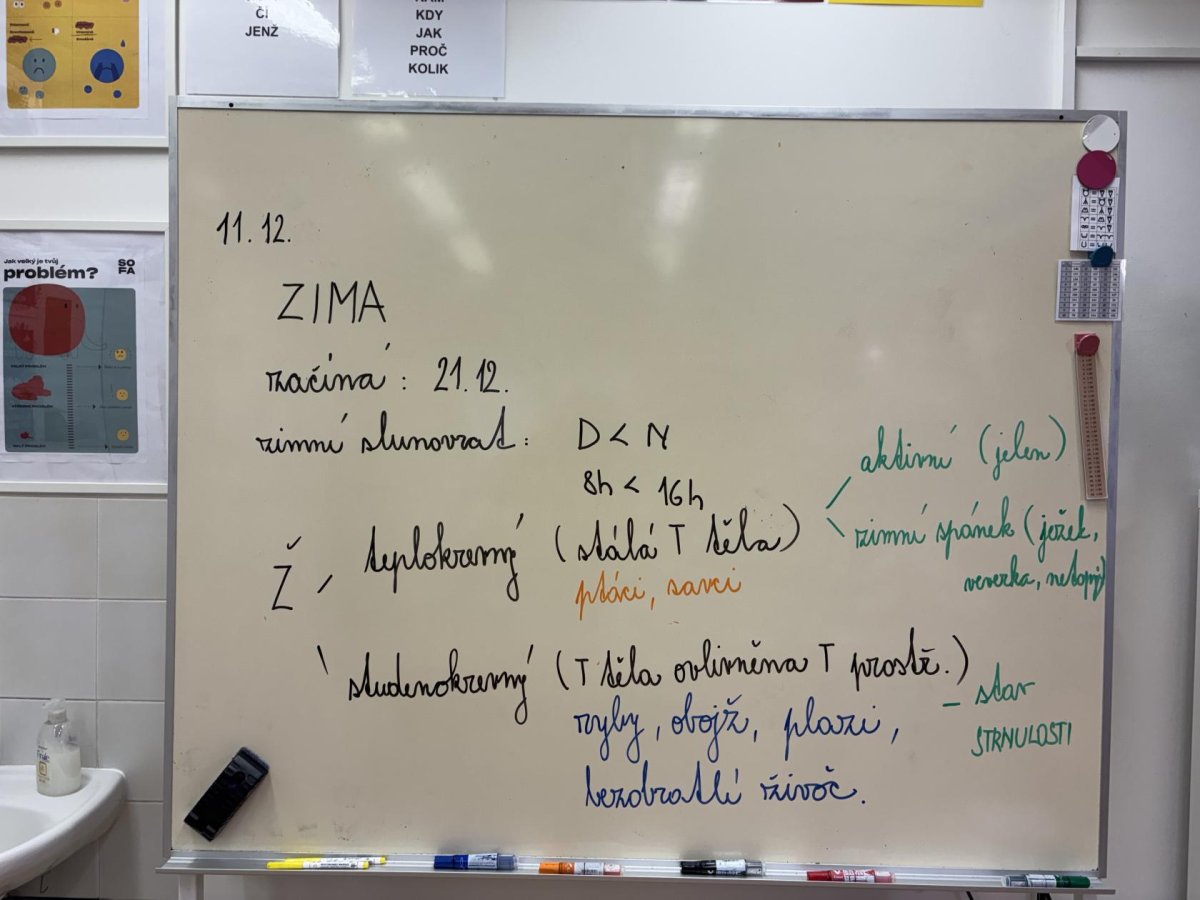 ČÍ
JENŽ
KAM
KDY
JAK
PROČ
KOLIK
Jak velký je tvůj
problém?
SO
FA
11. 12.
ZIMA
začíná : 21. 12.
zimní slunovrat : D < N
8h < 16h
Ž
teplokrevný (stálá T těla)
ptáci, savci
aktivní (jelen)
zimní spánek (ježek,
veverka, netopýr)
studenokrevný (T těla ovlivněna T prostř.)
ryby, obojž, plazi,
bezobratlí živoč.
- stav
STRNULOSTI